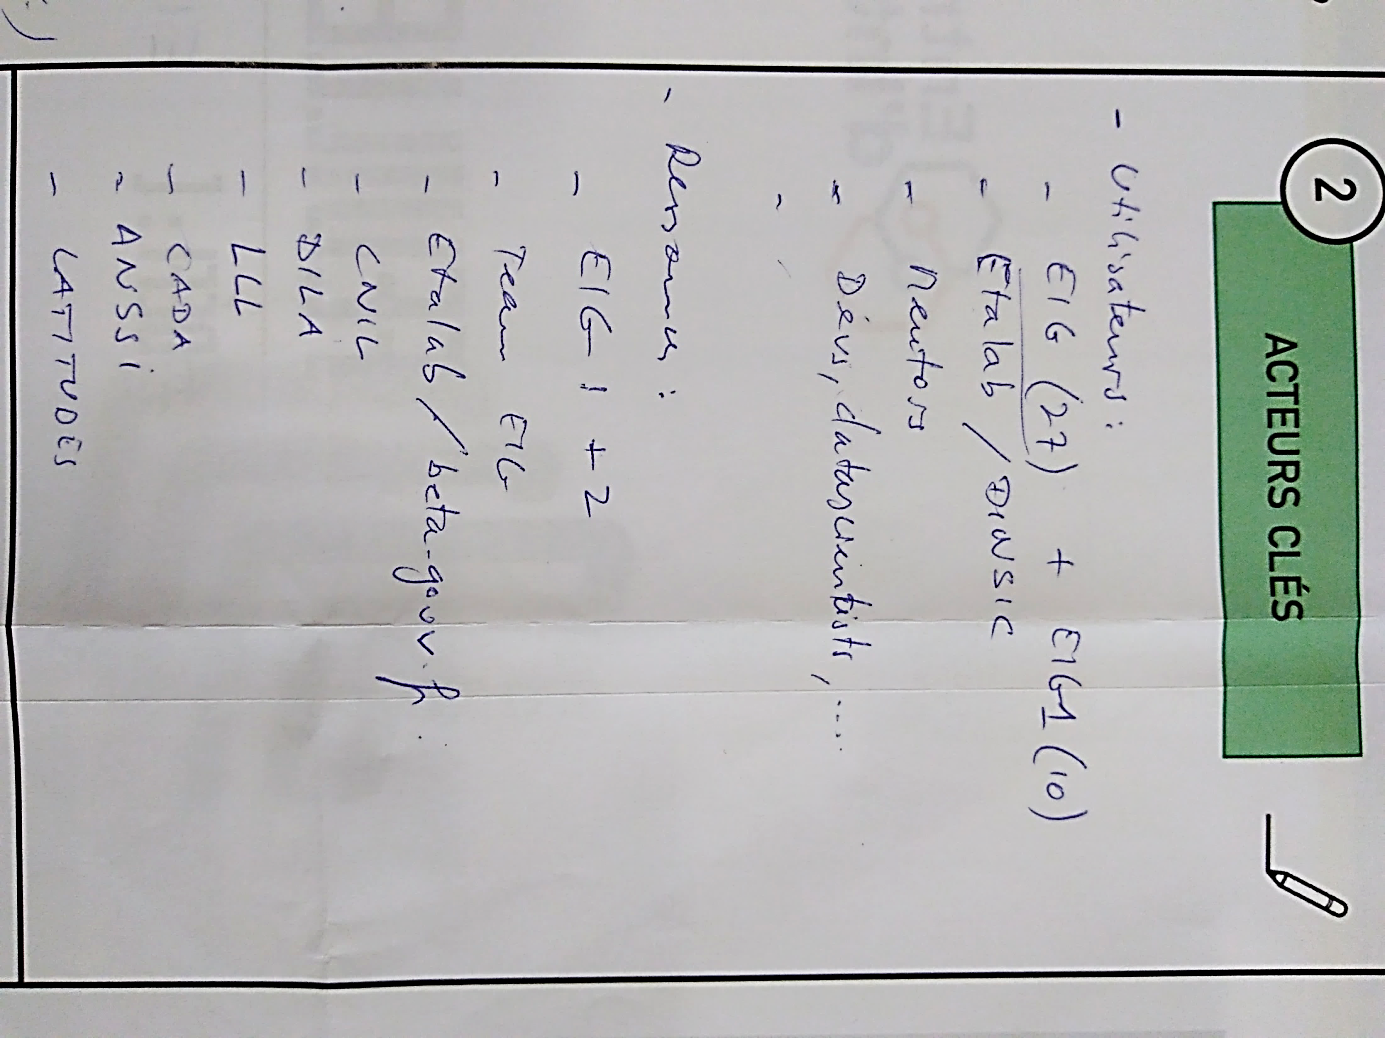 2
ACTEURS CLÉS
- Utilisateurs :
- EIG (27) + EIG1 (10)
- Etalab / DINSIC
- Mentors
- Dévs, datascientists, ...
-
- Ressources :
- EIG 1 + 2
- Team EIG
- Etalab / beta.gouv.fr
- CNIL
- DILA
- LLL
- CADA
- ANSSi
- LATITUDES